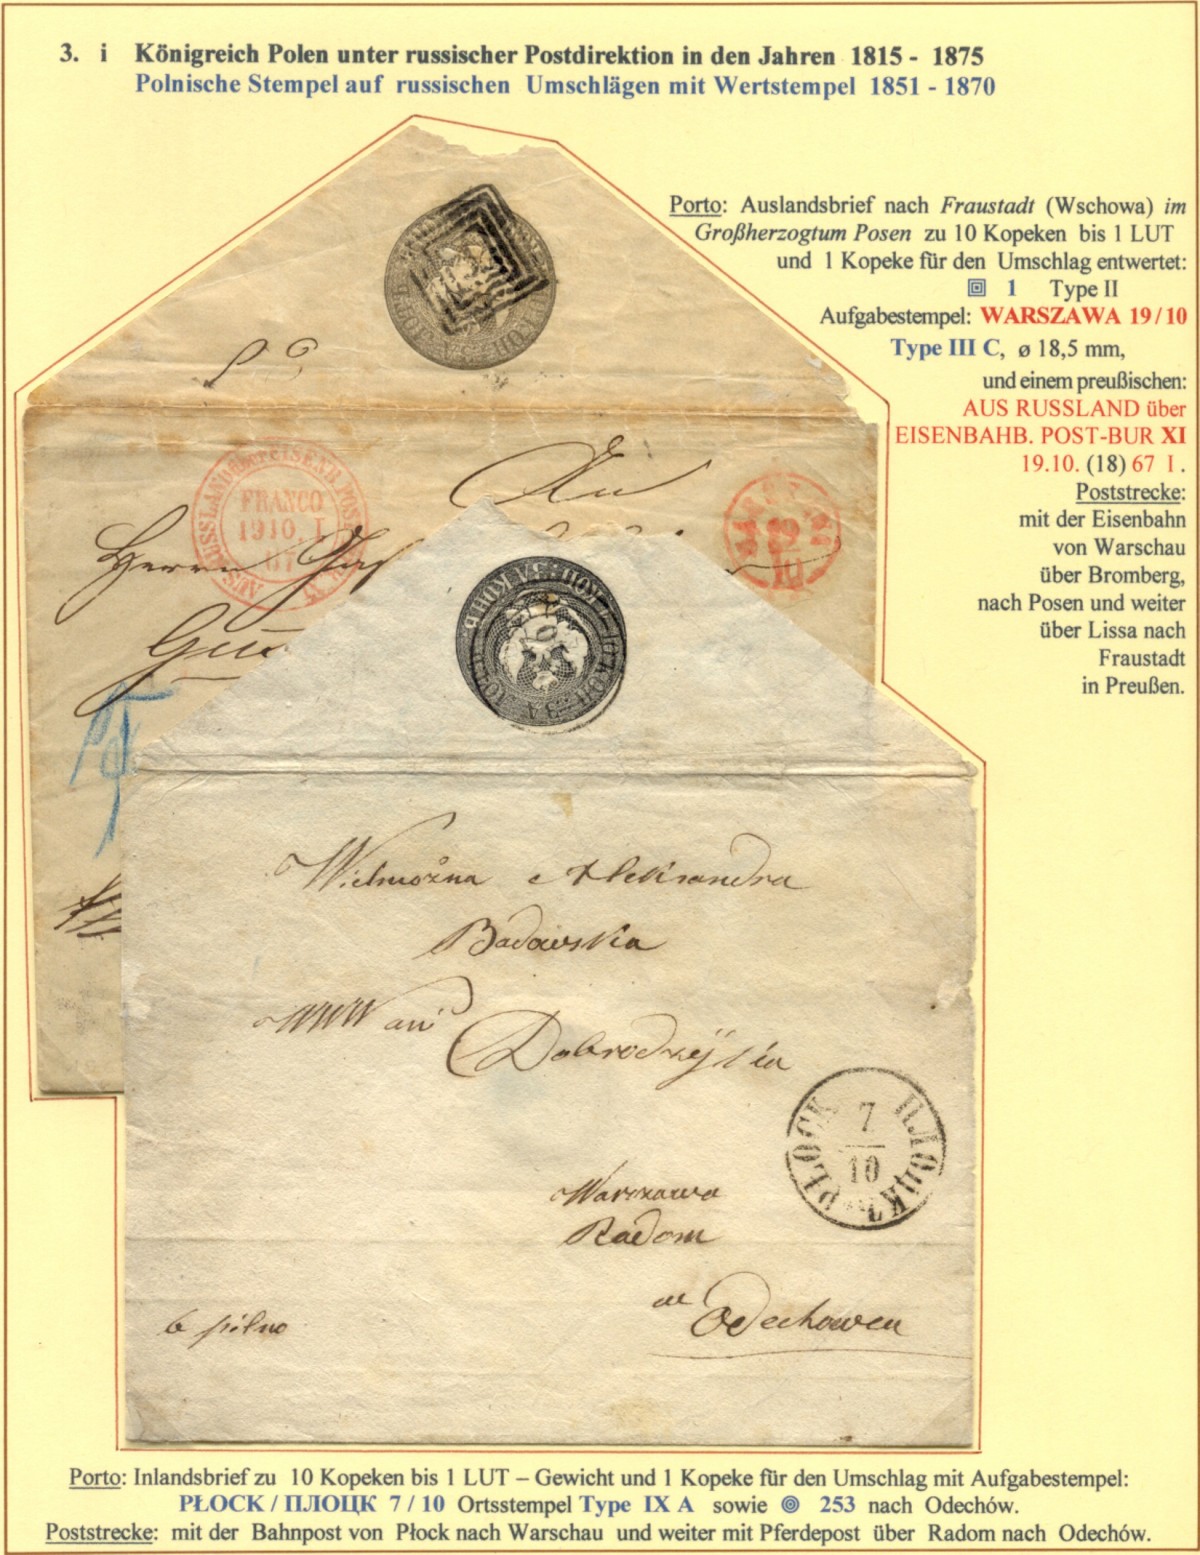 3. i Königreich Polen unter russischer Postdirektion in den Jahren 1815 - 1875
Polnische Stempel auf russischen Umschlägen mit Wertstempel 1851 - 1870
Porto: Auslandsbrief nach Fraustadt (Wschowa) im
Großherzogtum Posen zu 10 Kopeken bis 1 LUT
und 1 Kopeke für den Umschlag entwertet:
1 Type II
Aufgabestempel: WARSZAWA 19/10
Type III C, ø 18,5 mm,
und einem preußischen:
AUS RUSSLAND über
EISENBAHB. POST-BUR XI
19.10. (18) 67 I .
Poststrecke:
mit der Eisenbahn
von Warschau
über Bromberg,
nach Posen und weiter
über Lissa nach
Fraustadt
in Preußen.
AUS RUSSLAND über EISENB. POST
FRANCO
19 10. I
67
An
Herrn
19
10
Wielmożna Aleksandra
Badowska
WWW ani
Dobrodzyka
PŁOCK ПЛОЦКЪ
7
10
Warszawa
Radom
w Odechowen
b pilno
Porto: Inlandsbrief zu 10 Kopeken bis 1 LUT – Gewicht und 1 Kopeke für den Umschlag mit Aufgabestempel:
PŁOCK / ПЛОЦК 7 / 10 Ortsstempel Type IX A sowie 253 nach Odechów.
Poststrecke: mit der Bahnpost von Płock nach Warschau und weiter mit Pferdepost über Radom nach Odechów.